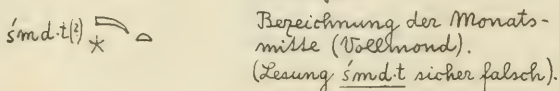 śmd·t(?)
Bezeichnung der Monats-
mitte (Vollmond).
(Lesung śmd·t sicher falsch).